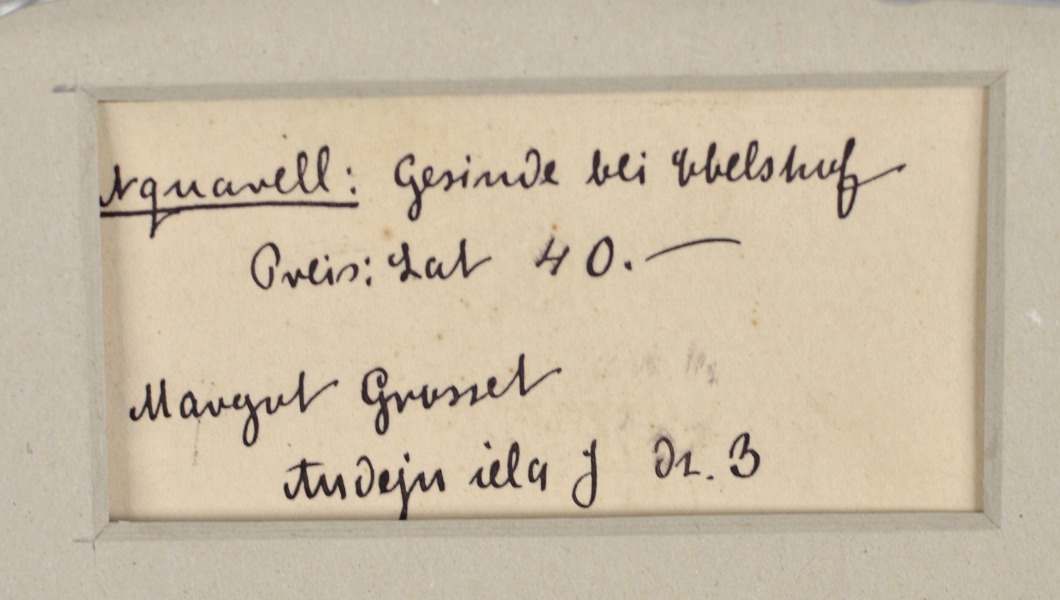 Aquarell: Gesinde bei Ebelshof
Preis: Lat 40.—
Margot Grosset
iela dz. 3